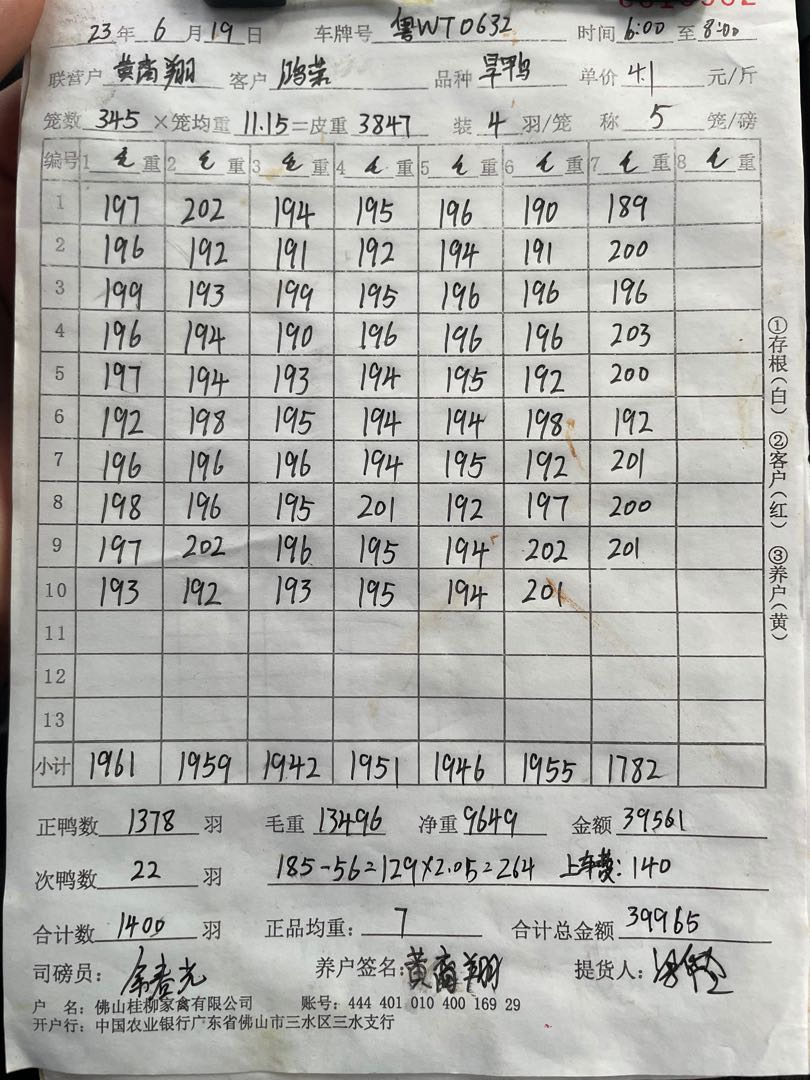 23年 6月19日 车牌号 粤WT0632 时间 6:00 至 8:00
联营户 黄裔翔 客户 鸿荣 品种 旱鸭 单价 4.1 元/斤
笼数 345 ×笼均重 11.15=皮重 3847 装 4 羽/笼 称 5 笼/磅
编号 1 毛 重 2 毛 重 3 毛 重 4 毛 重 5 毛 重 6 毛 重 7 毛 重 8 毛 重
1 197 202 194 195 196 190 189
2 196 192 191 192 194 191 200
3 199 193 199 195 196 196 196
4 196 194 190 196 196 196 203
5 197 194 193 194 195 192 200
6 192 198 195 194 194 198 192
7 196 196 196 194 195 192 201
8 198 196 195 201 192 197 200
9 197 202 196 195 194 202 201
10 193 192 193 195 194 201
11
12
13
小计 1961 1959 1942 1951 1946 1955 1782
正鸭数 1378 羽 毛重 13496 净重 9649 金额 39561
次鸭数 22 羽 185-56=129×2.05=264 上车费:140
合计数 1400 羽 正品均重: 7 合计总金额 39965
司磅员: 养户签名:黄裔翔 提货人:
户 名:佛山桂柳家禽有限公司 账号:444 401 010 400 169 29
开户行:中国农业银行广东省佛山市三水区三水支行
①存根(白) ②客户(红) ③养户(黄)